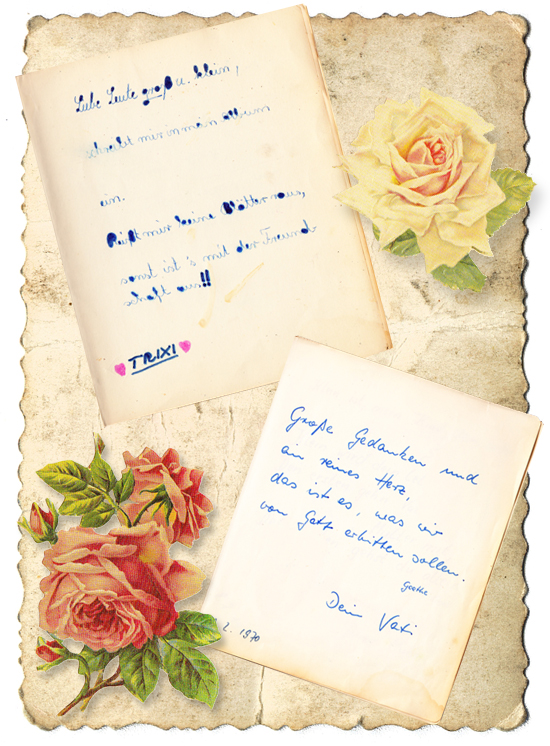 Liebe Leute groß u. klein,
schreibt mir in mein Album
ein.
Reißt mir keine Blätter raus,
sonst ist's mit der Freund
schaft aus!!
TRIXI
Große Gedanken und
ein reines Herz,
das ist es, was wir
von Gott erbitten sollen.
Goethe
Dein Vati
2. 1970